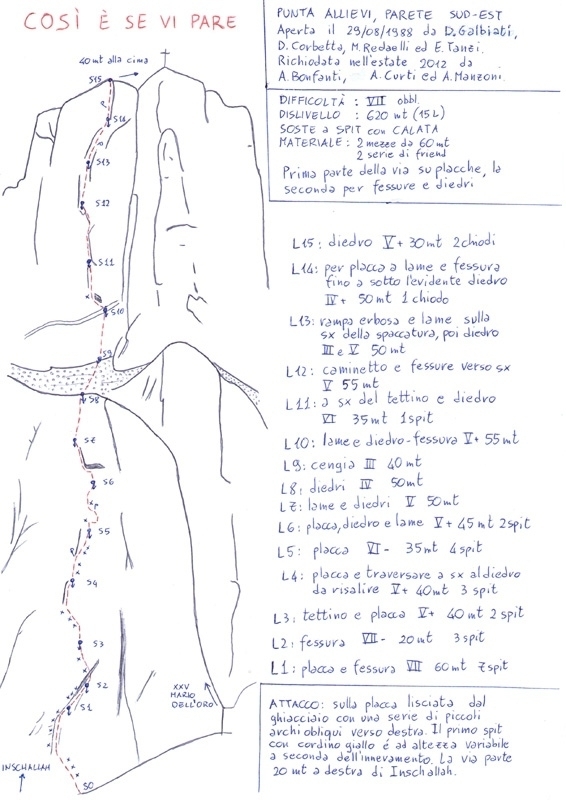 COSÌ È SE VI PARE
PUNTA ALLIEVI, PARETE SUD-EST
Aperta il 29/08/1988 da D. Galbiati,
D. Corbetta, M. Redaelli ed E. Tanzi.
Richiodata nell'estate 2012 da
A. Bonfanti, A. Curti ed A. Manzoni.
DIFFICOLTÀ : VII obbl.
DISLIVELLO : 620 mt (15L)
SOSTE a SPIT con CALATA
MATERIALE : 2 mezze da 60mt
2 serie di friend
Prima parte della via su placche, la
seconda per fessure e diedri
L15: diedro V+ 30mt 2chiodi
L14: per placca a lame e fessura
fino a sotto l'evidente diedro
IV+ 50mt 1 chiodo
L13: rampa erbosa e lame sulla
sx della spaccatura, poi diedro
III e V 50 mt
L12: caminetto e fessure verso sx
V 55 mt
L11: a sx del tettino e diedro
VI 35mt 1 spit
L10: lame e diedro-fessura V+ 55mt
L9: cengia III 40 mt
L8: diedri IV 50mt
L7: lame e diedri V 50mt
L6: placca, diedro e lame V+ 45 mt 2spit
L5: placca VI- 35mt 4 spit
L4: placca e traversare a sx al diedro
da risalire V+ 40mt 3 spit
L3: tettino e placca V+ 40 mt 2 spit
L2: fessura VII- 20 mt 3 spit
L1: placca e fessura VII 60 mt 7spit
ATTACCO: sulla placca lisciata dal
ghiacciaio con una serie di piccoli
archi obliqui verso destra. Il primo spit
con cordino giallo é ad altezza variabile
a seconda dell'innevamento. La via parte
20 mt a destra di Inschallah.
40 mt alla cima
S15
S14
S13
S12
S11
S10
S9
S8
S7
S6
S5
S4
S3
S2
S1
S0
XXV
MARIO
DELL'ORO
INSCHALLAH